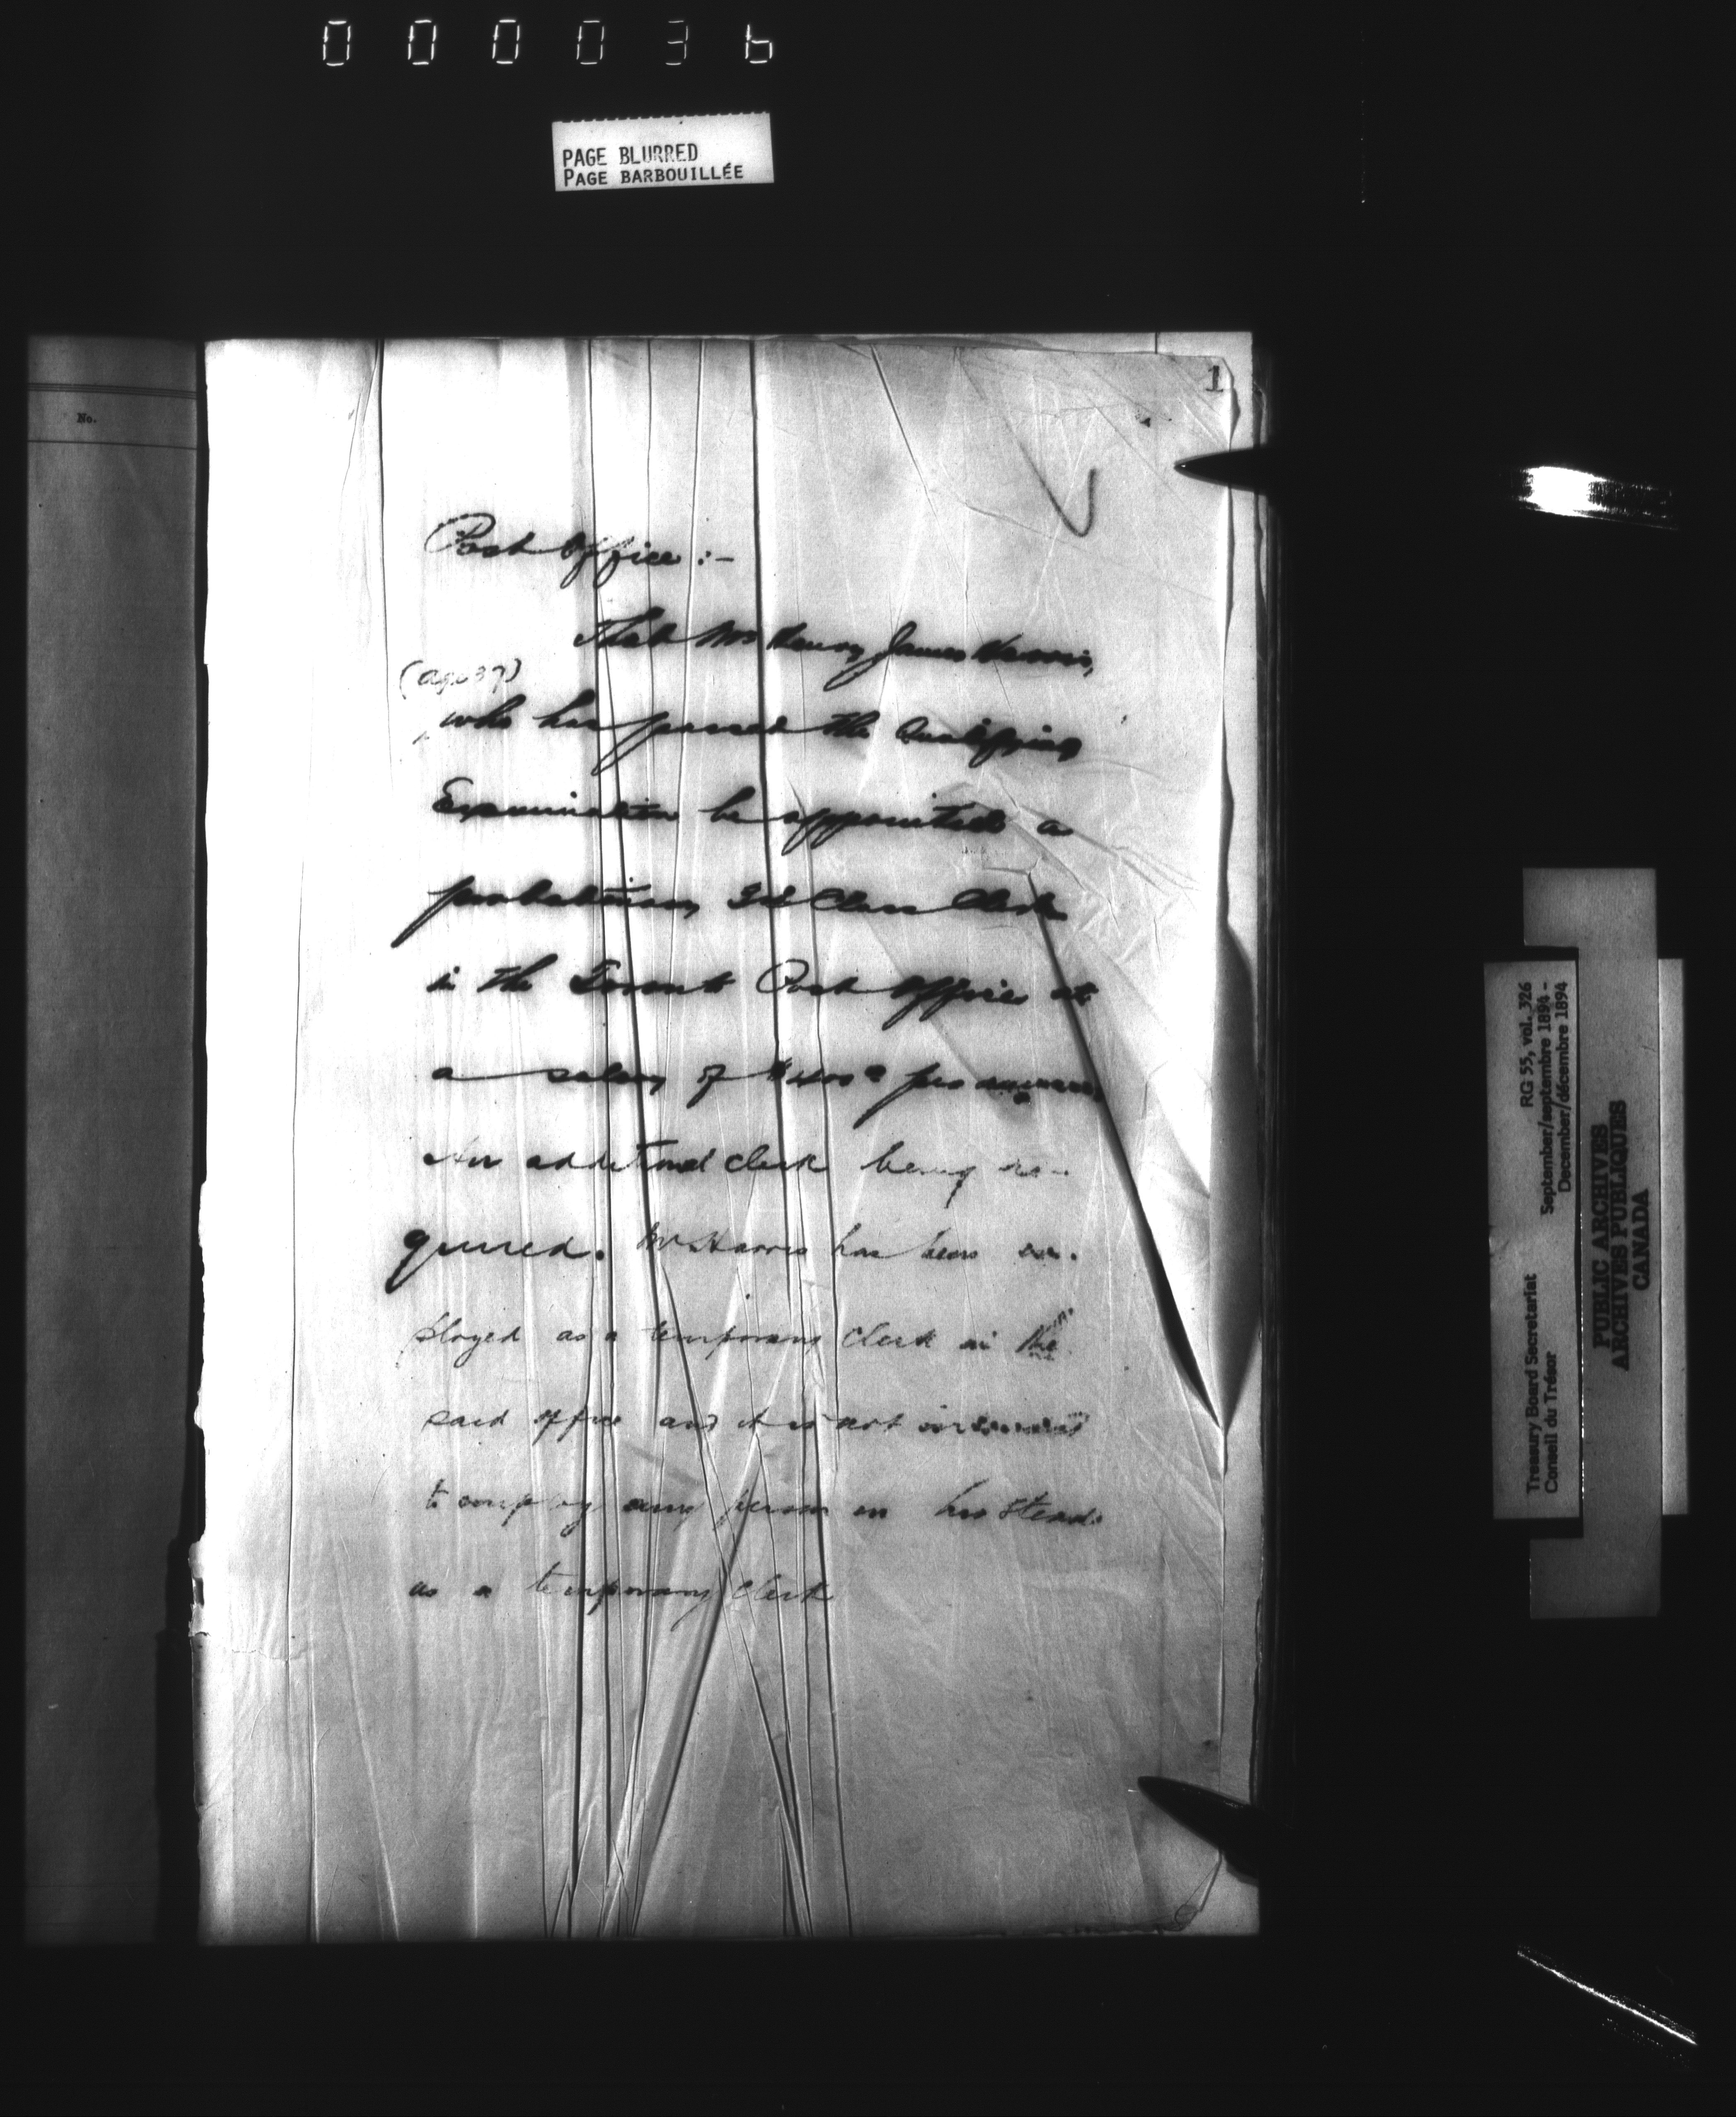 000036
PAGE BLURRED
PAGE BARBOUILLÉE
No.
1
Post Office :-
That Mr Henry James Harris,
(age 37)
who has passed the Qualifying
Examination be appointed a
probationary 3d Class Clerk
in the Toronto Post Office at
a salary of $400 per annum
An additional clerk being re-
quired. Mr Harris has been em-
ployed as a temporary clerk in the
said office and it is not
to employ any person in his stead
as a temporary clerk
Treasury Board Secretariat RG 55, vol. 326
Conseil du Trésor September/septembre 1894 -
December/décembre 1894
PUBLIC ARCHIVES
ARCHIVES PUBLIQUES
CANADA